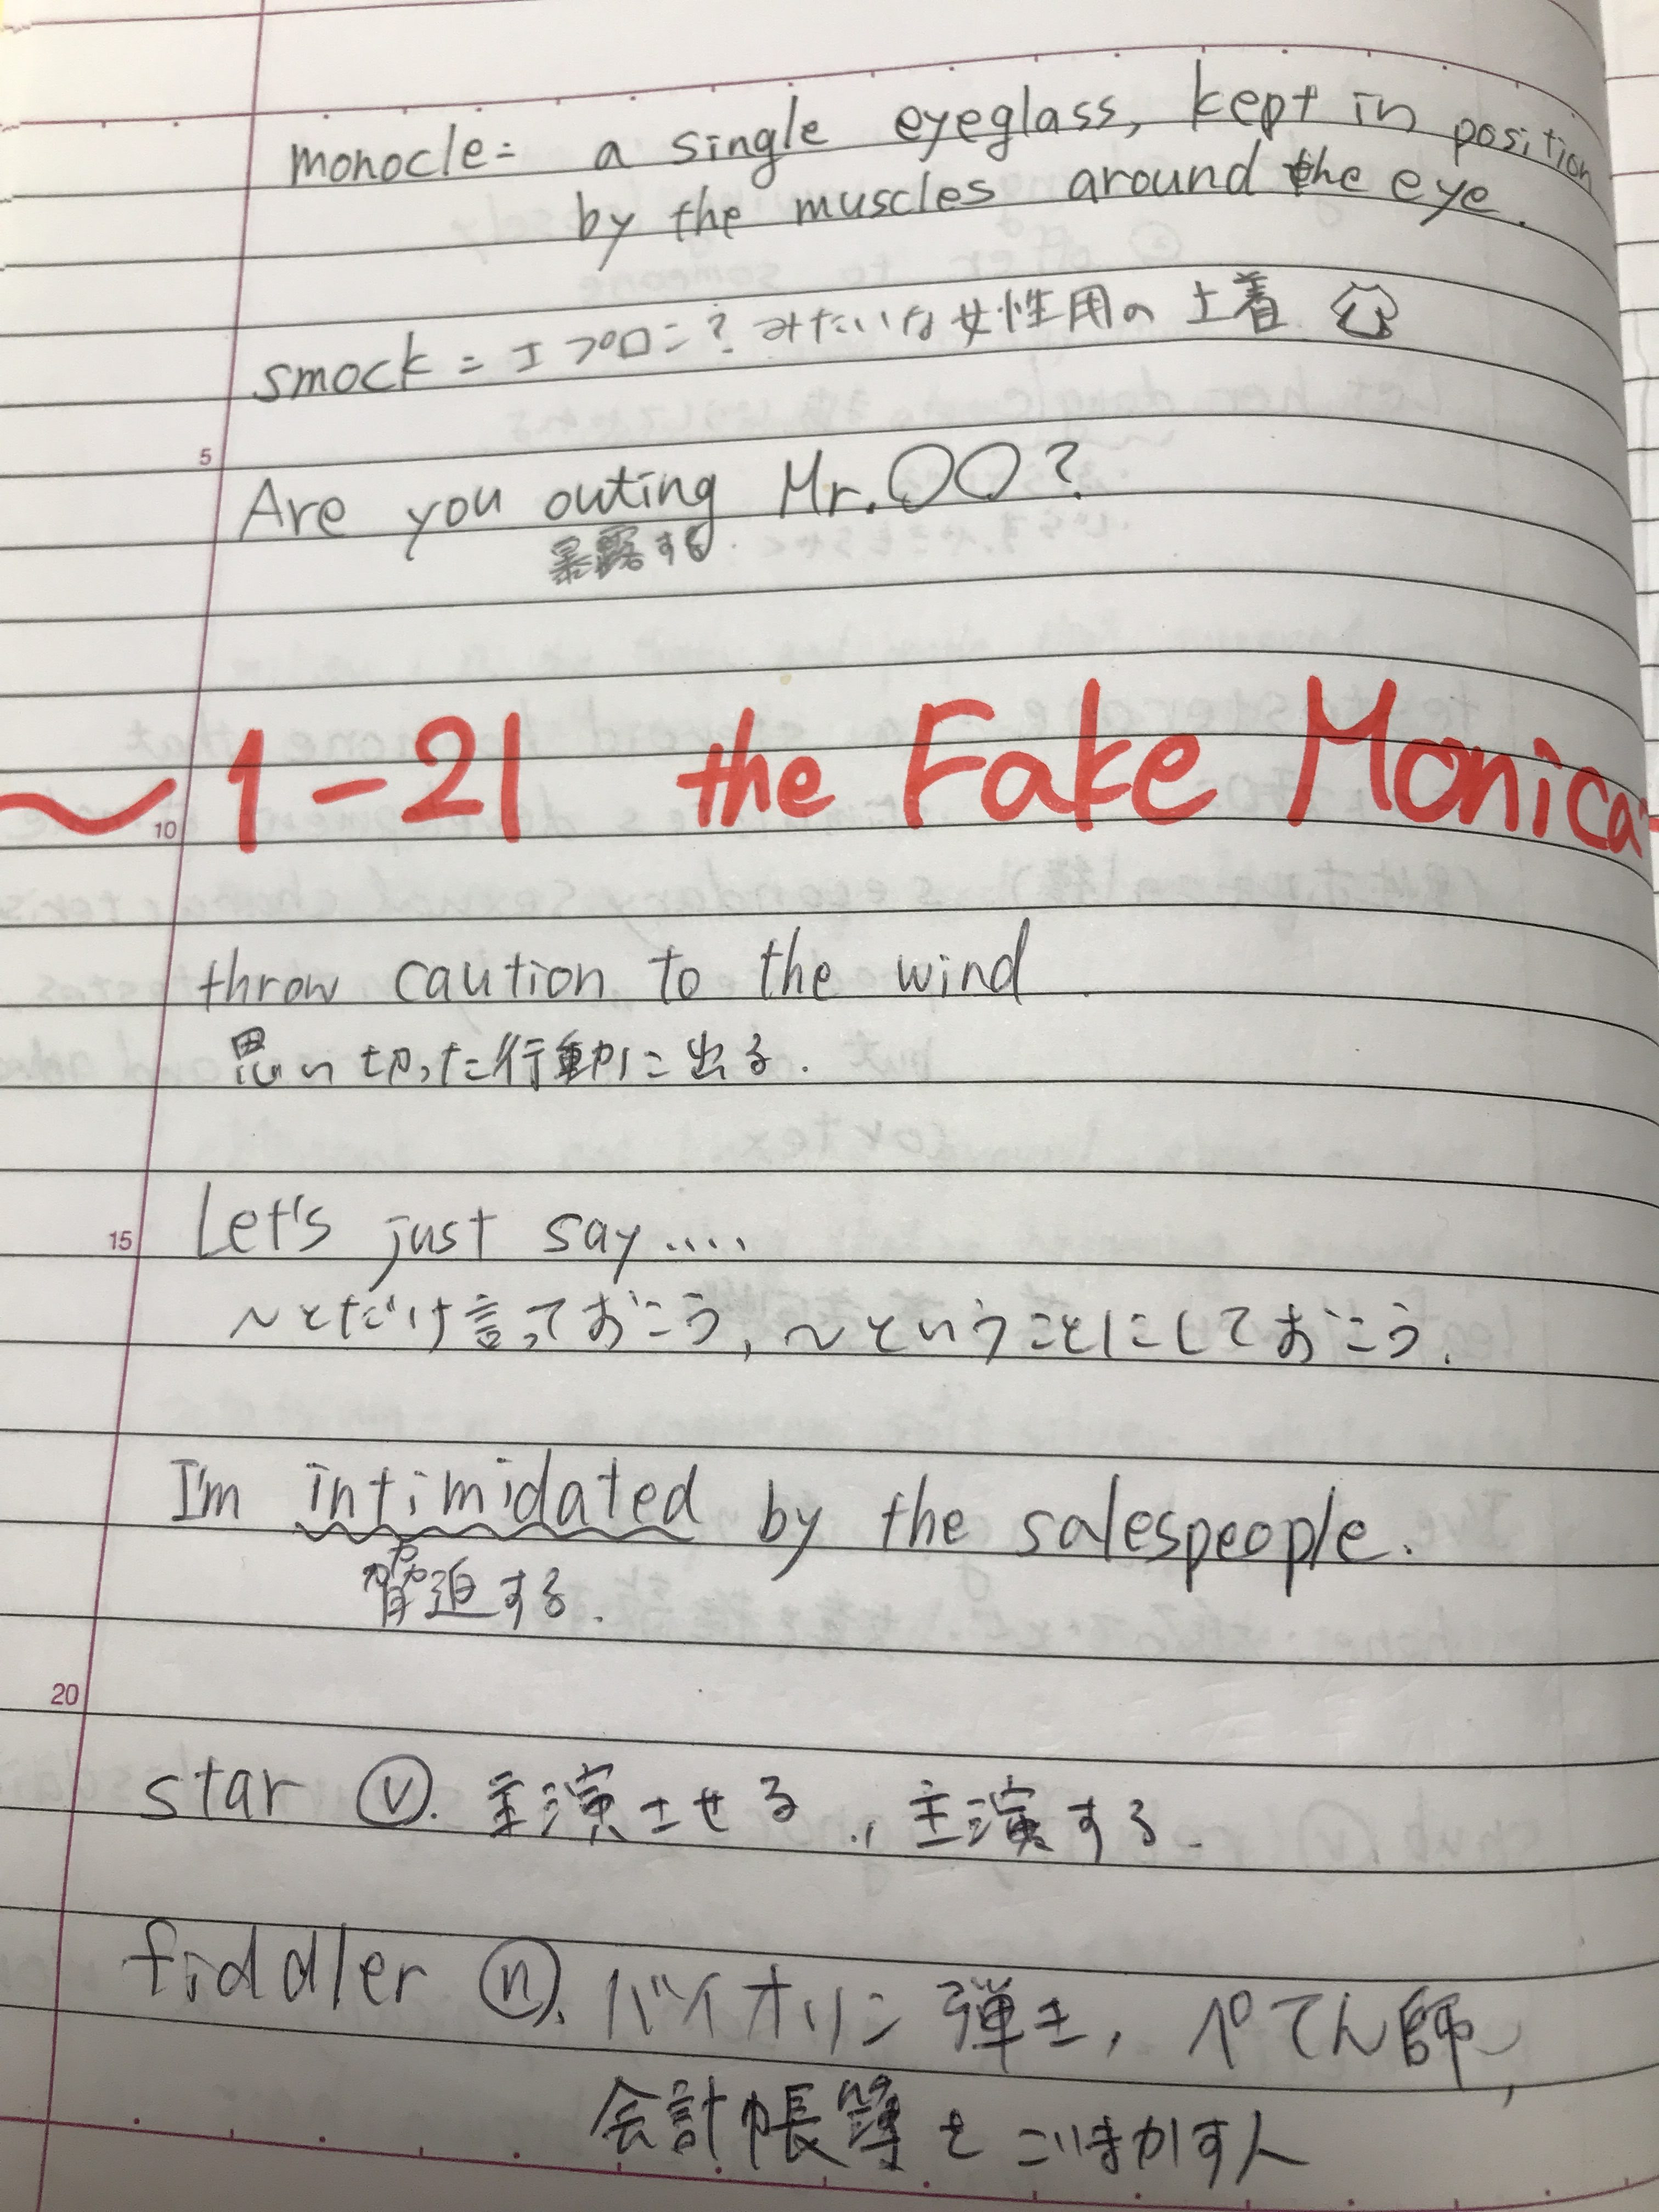 monocle = a single eyeglass, kept in position
by the muscles around the eye.
smock = エプロン? みたいな女性用の上着
5
Are you outing Mr.〇〇?
暴露する
~1-21 the Fake Monica~
10
throw caution to the wind
思い切った行動に出る.
15
Let's just say....
~とだけ言っておこう, ~ということにしておこう.
I'm intimidated by the salespeople.
脅迫する.
20
star ⓥ. 主演させる., 主演する.
fiddler ⓝ. バイオリン弾き, ペてん師,
会計帳簿をごまかす人